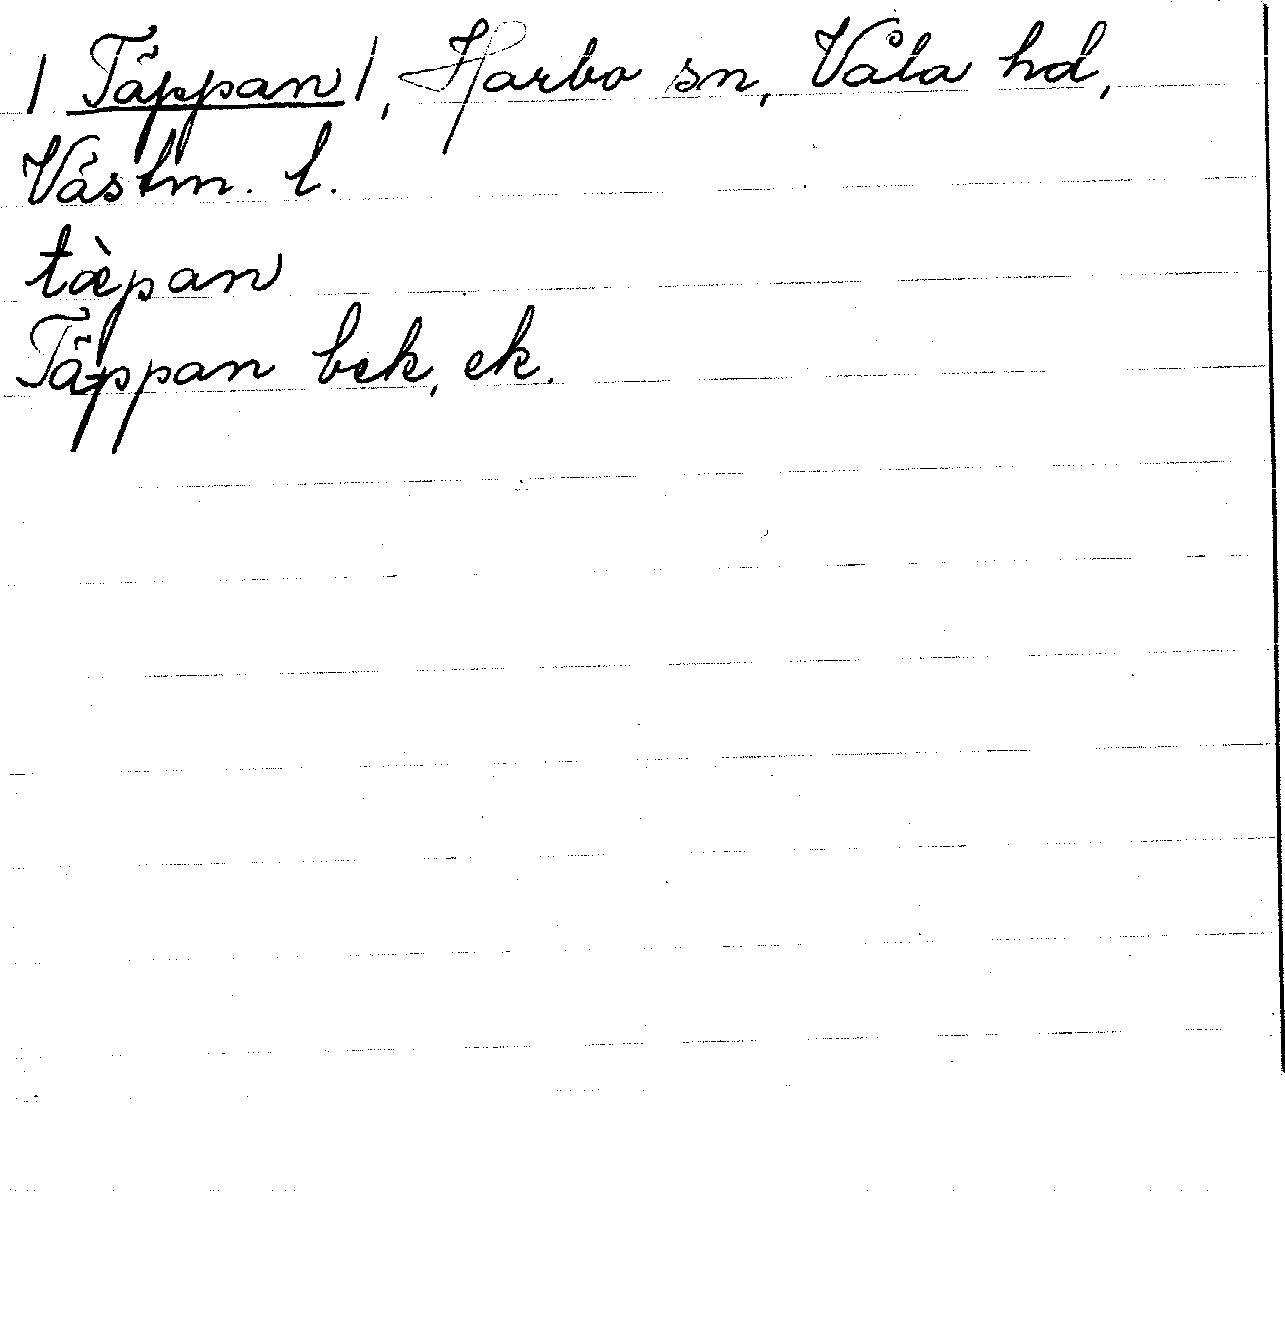 / Täppan /, Harbo sn, Våla hd,
Västm. l.
tæ̀pan
Täppan bek, ek.